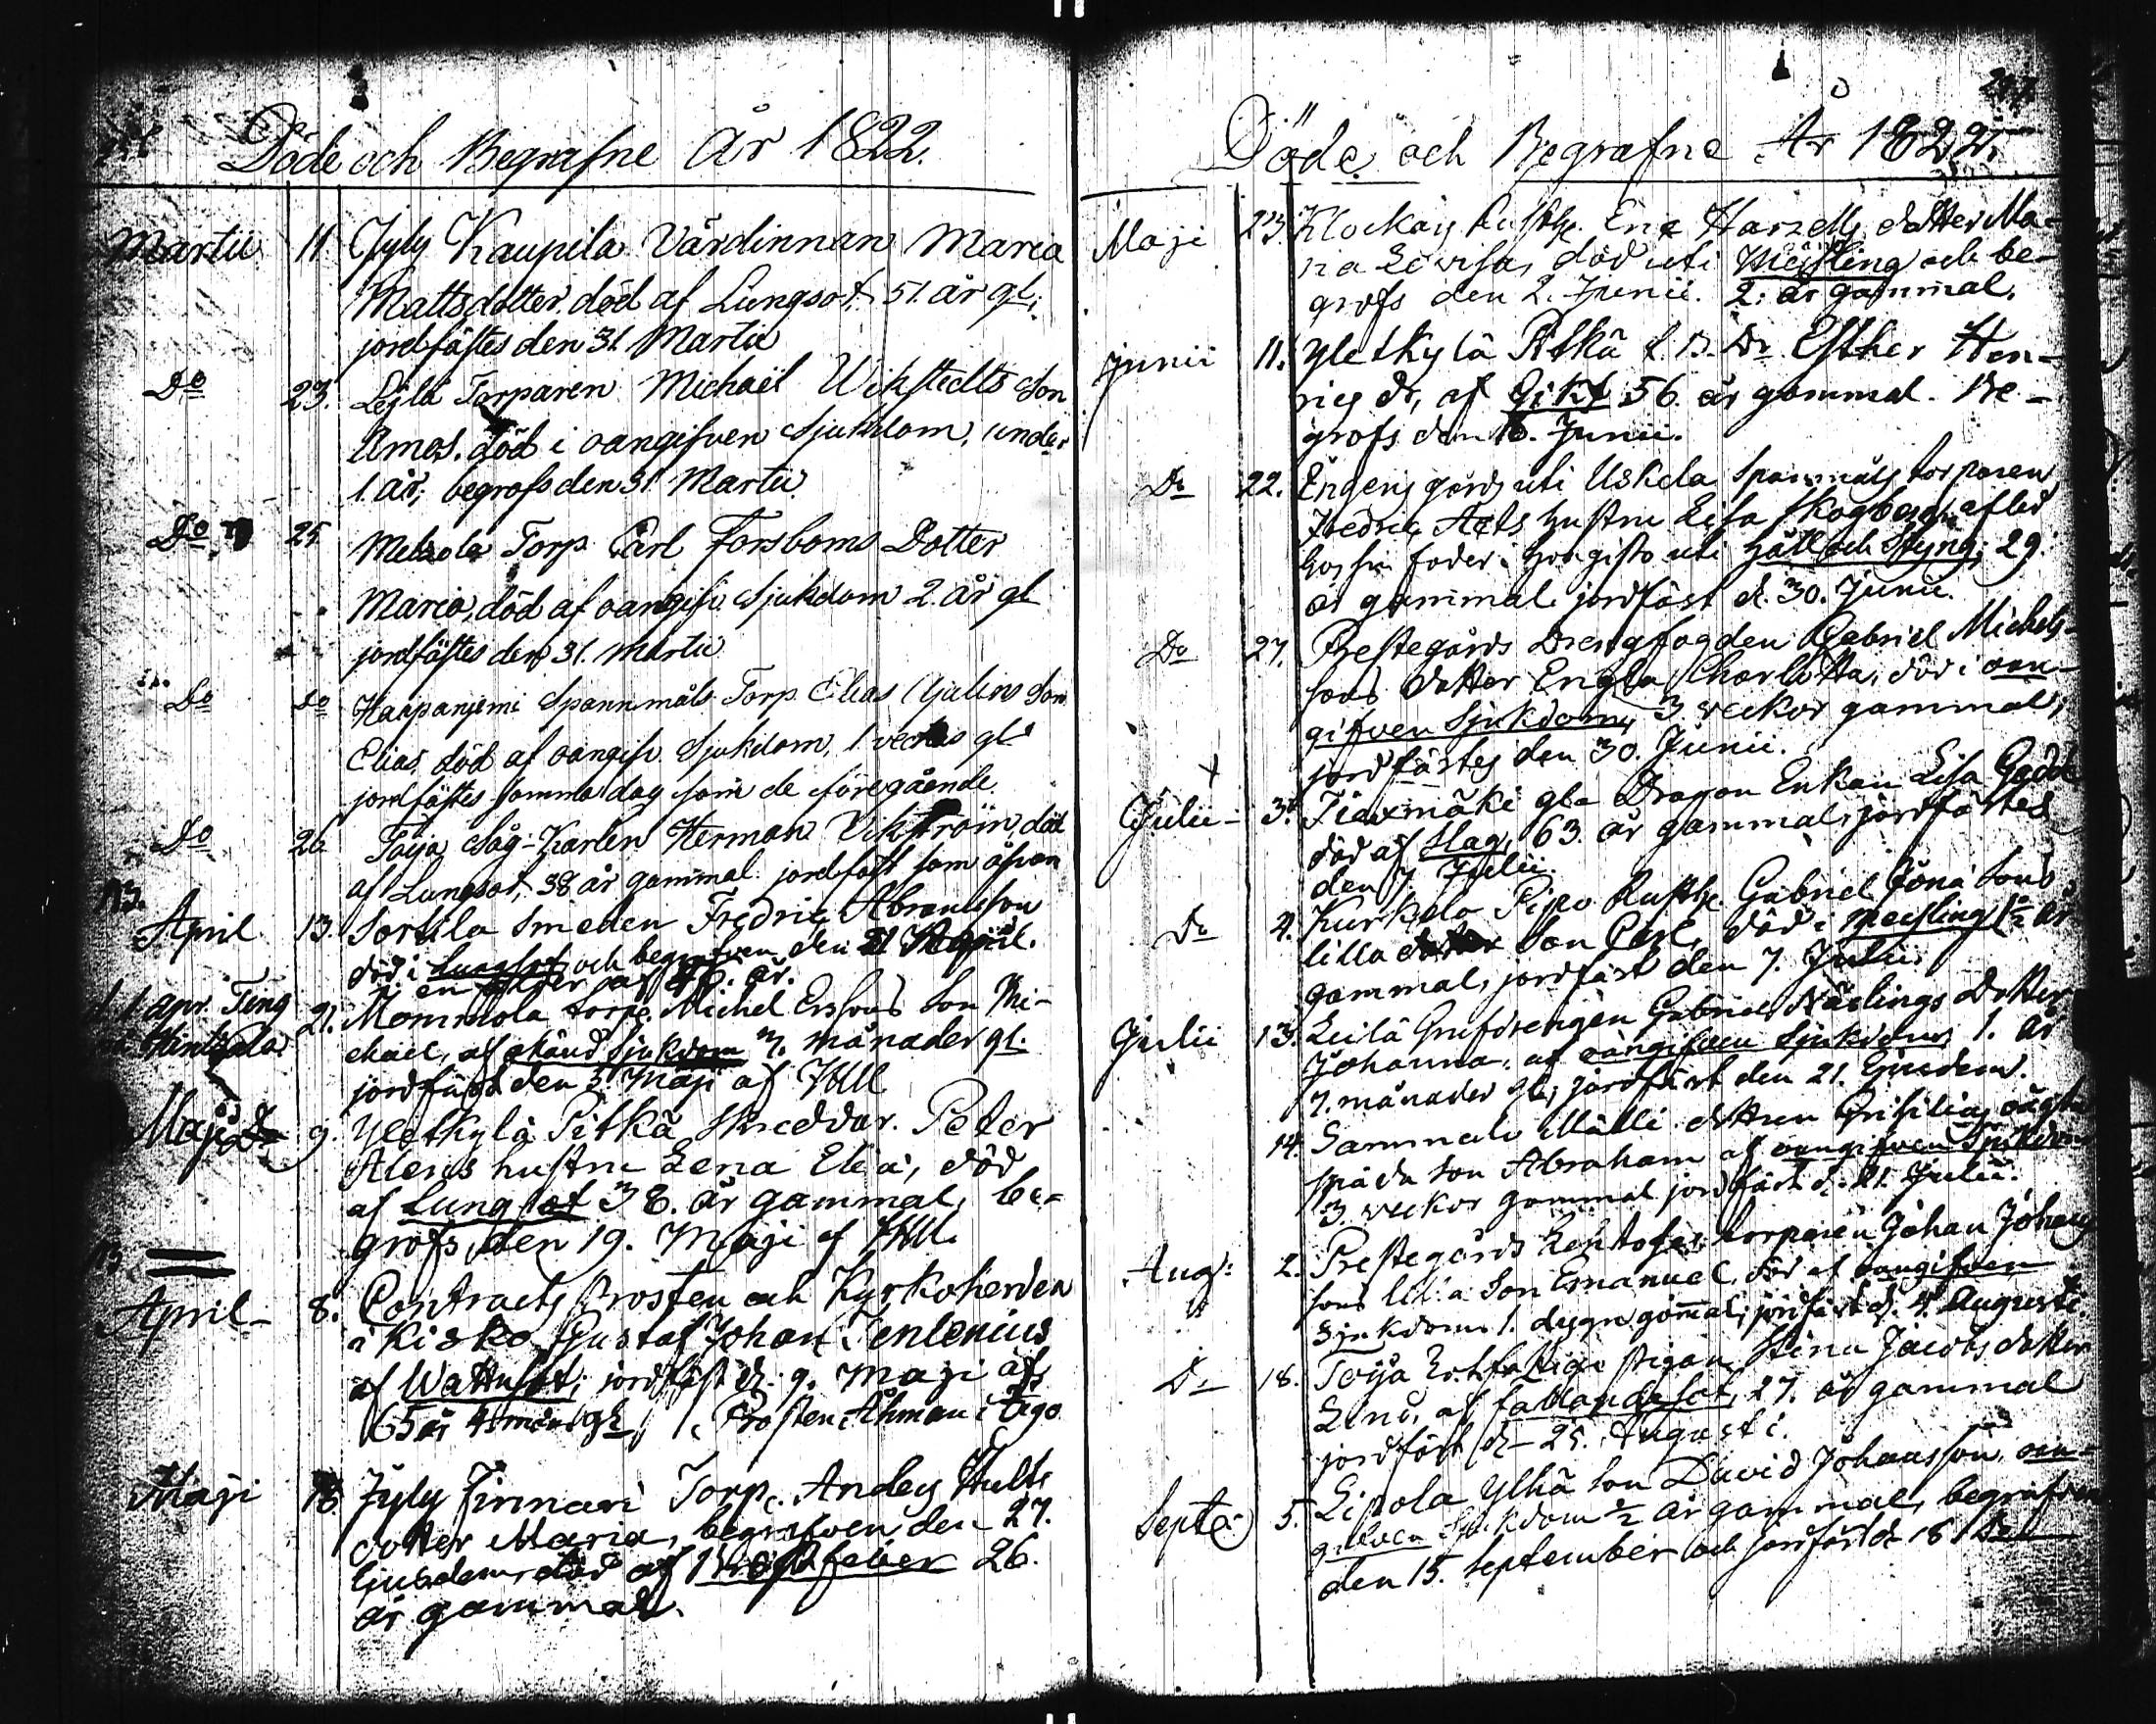 Döde och Begrafne År 1822.
Martii 11. Jyly Kaupila Värdinnan Maria
Mattsdotter, död af Lungsot 51. år gl.
jordfästes den 31. Martii
Do 23. Lejlä Torparen Michaël Wikstedts Son
Amos, död i oangifven Sjukdom, under
1. år, begrofs den 31 Martii.
Do 25 Torp. Carl Forsboms Dotter
Maria, död af oangifv. Sjukdom 2. år gl
jordfästes den 31. Martii
Do Do Haapaniemi Spannmåls Torp. Elias Gjulins Son
Elias, död af oangifv. Sjukdom, 1 veckas gl
jordfästes samma dag som de föregående.
Do 26 Toija Såg-Karlen Herman Vikström, död
af Lungsot, 38 år gammal. jordfäst som ofvan
April 13. Sorkila Smeden Fredric Abramsson
död i Lungsot, och begrafven den 21 April.
21. Mommola torp. Michel Erssons Son Mi-
chael, af okänd Sjukdom 3. månader gl.
jordfäst den 5. Maji af
Maji 9. Yletkylä Pitkä Skreddar. Peter
Alens hustru Lena Elia, död
af Lungsot 38. år gammal, be-
grofs den 19. Maji af
April 8. Contracts Prosten och Kyrkoherden
i Kisko Gustaf Johan Tenlenius
af Wattusot; jordfäst d. 9. Maji af
65 år 4 mån gl Prosten Åhman i
Maji 18. Jyly Finnari Torp. Anders Hults
dotter Maria, begrafven den 27.
Ejusdem, död af Bröstfeber 26.
år gammal.
Döde och Begrafne År 1822.
Maji 23. Klockars Rusth. Eric Harzells dotter Ma-
ria Lovisa, död uti Meisling och be-
grofs den 2. Junii. 2. år gammal.
Junii 11. Yletkylä Pitkä f. B. Dr. Esther Hen-
rics dr, af Gikt 56. år gammal. Be-
grofs den 16. Junii.
Do 22. gård uti Uskela Spanmåls torparen
Fredric hustru Lisa Skogberg, afled
hos sin fader uti håll och Styng, 29.
år gammal jordfäst d. 30. Junii.
Do 27. Prestegårds Drengfogden Gabriel Michels-
sons dotter Engla Charlotta, död i oan-
gifven Sjukdom, 3. veckor gammal,
jordfästes den 30. Junii.
Julii 3. gla Dragon Enkan Lisa Gadd
död af Slag, 63. år gammal, jordfästes
den 7. Julii.
Do 4. Kurkela Pipo Rusth. Gabriel Jona Sons
lilla Son Carl, död i meisling ½ år
gammal, jordfäst den 7. Julii.
Julii 13. Leilä Grufdrengen Gabriel Näslings Dotter
Johanna, af oangifven Sjukdom, 1. år
7. månader gl, jordfäst den 21. Ejusdem.
14. Sammalo Mälli dottren oägta
späda Son Abraham af oangifven Sjukdom
3. veckor gammal jordfäst d. 21. Julii.
Aug: 2. Prestegårds torparen Johan Johans
sons lilla Son Emanuel, död af oangifven
Sjukdom 1. dygn gammal, jordfäst d. 4. Augusti
Do 18. Toija Rotfattige pigan Stina Jacobs dotter
Lena, af fallandesot, 27. år gammal
jordfäst d. 25. Augusti.
Septe: 5. Lipola Ylhä Son David Johansson oan-
gifven Sjukdom ½ år gammal, begrafven
den 15. September och jordfäst d. 18